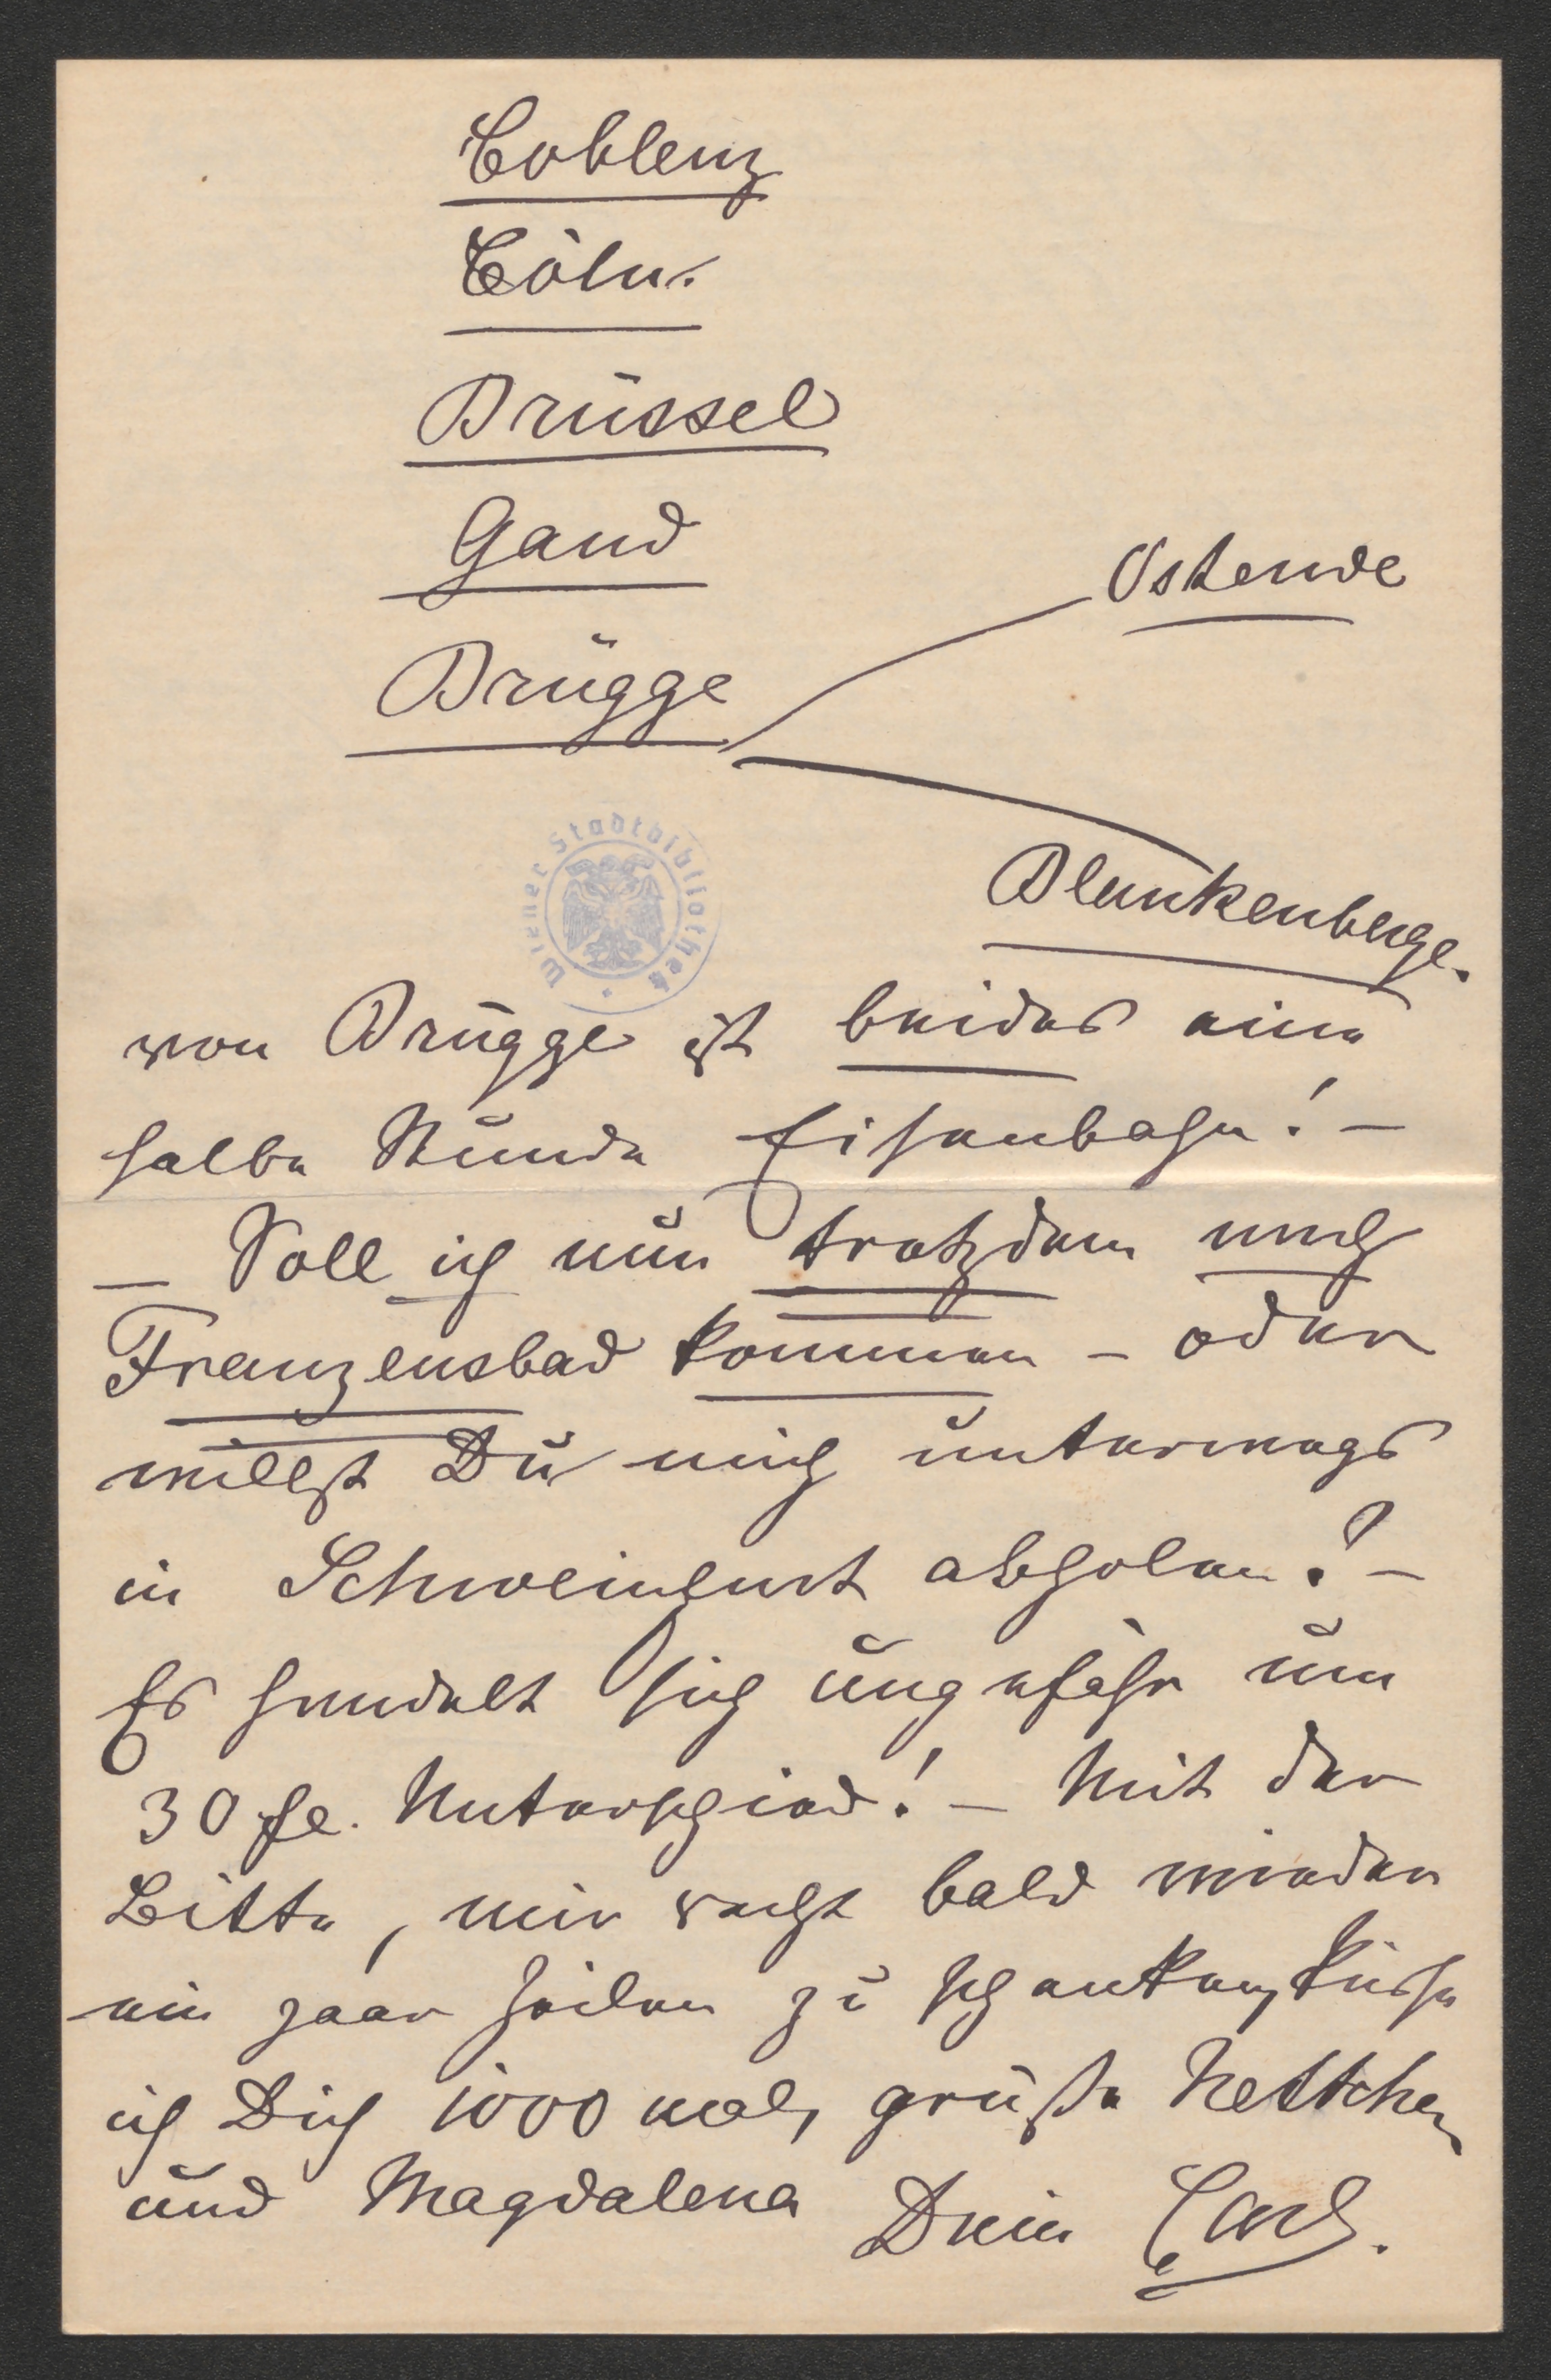 Coblenz
Cöln.
Brüssel
Gand
Ostende
Brügge
Wiener Stadtbibliothek
Blankenberge.
von Brügge ist beides eine
halbe Stunde Eisenbahn! –
– Soll ich nun trotzdem nach
Franzensbad kommen – oder
willst Du mich unterwegs
in Schweinfurt abholen? –
Es handelt sich ungefähr um
30 fl. Unterschied! – Mit der
Bitte, mir recht bald wieder
ein paar Zeilen zu schenken, küsse
ich Dich 1000 mal, grüße Nettchen
und Magdalena Dein Carl.